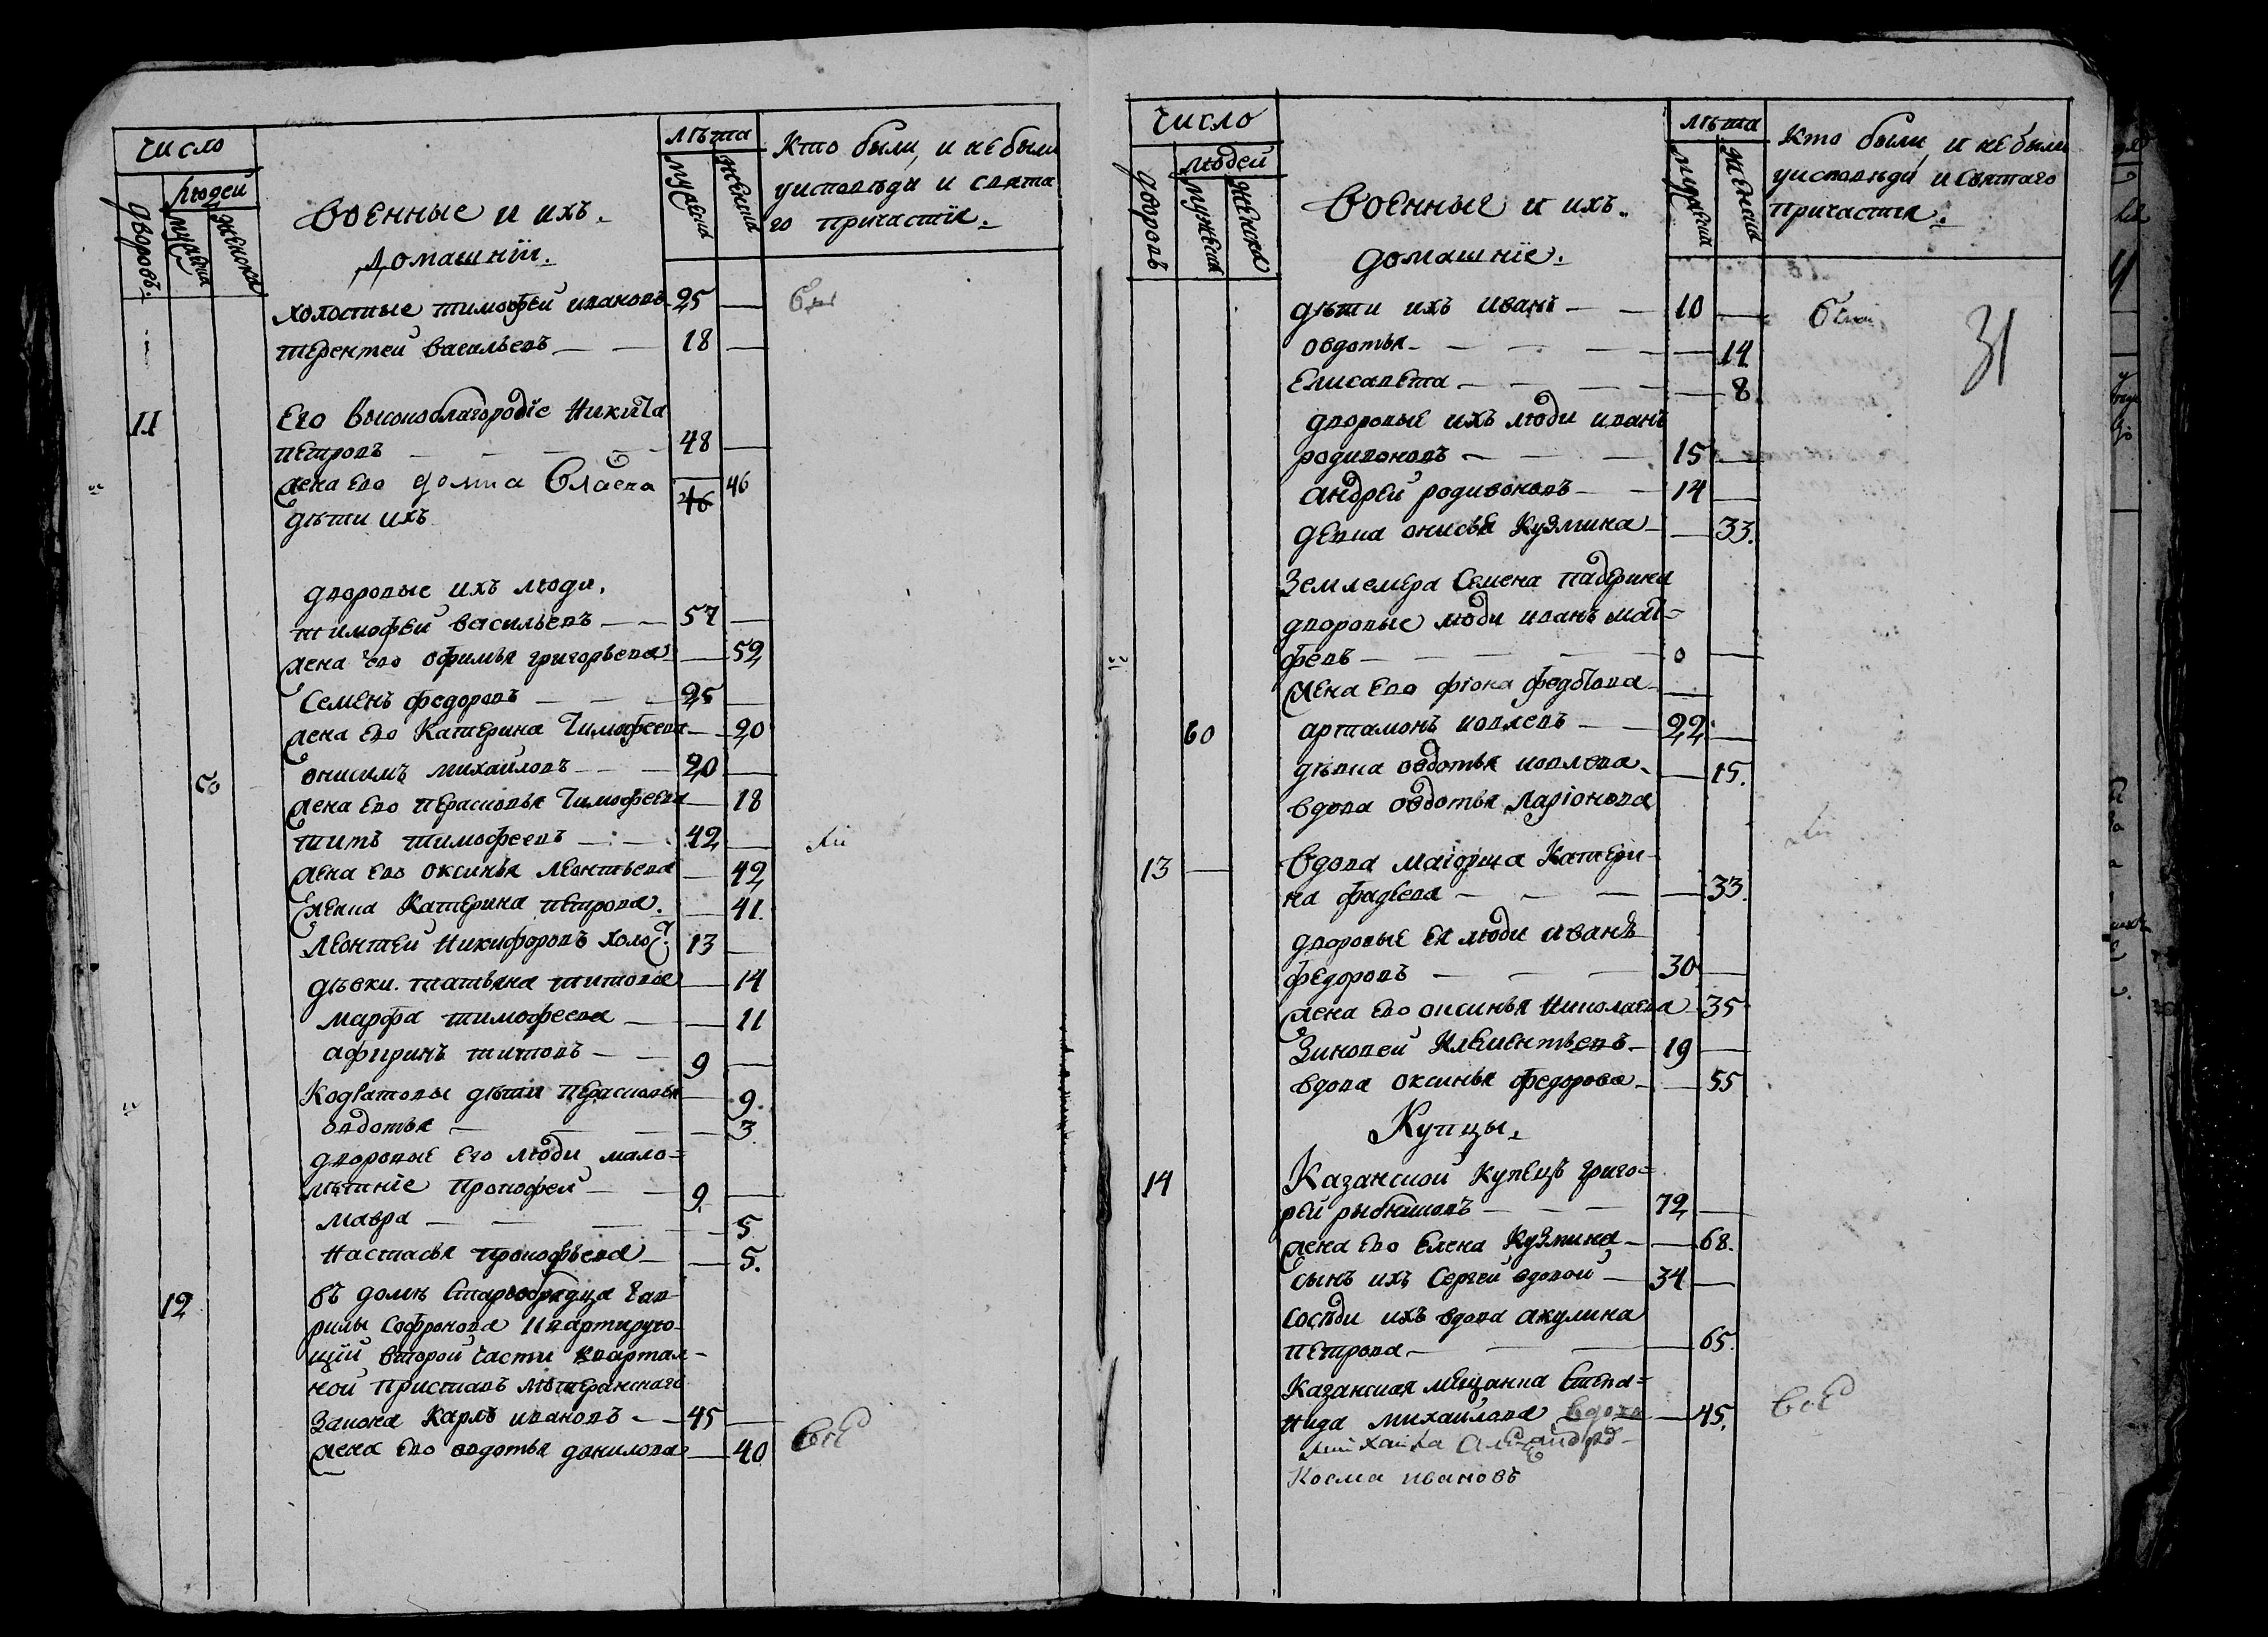 число
людей
дворовъ.
мужеска
женска
Военные и ихъ.
Домашнїи.
лѣта
мужеска
женска
Кто были, и не были
уисповѣди и свята
го причастїя.
холостые тимофеи ивановъ 25
терентеи васильевъ 18
11 Его высокоблагородїе Никита
петровъ 48
жена ево домна Власва 46 46
дѣти ихъ
дворовые ихъ люди.
тимофеи васильевъ 57
жена ево офимья григорьева 52
семенъ федоровъ 25
жена ево Катерина Тимофеева 20
50 онисимъ михаиловъ 20
жена ево перасковья Тимофеева 18
титъ тимофеевъ 42
жена ево оксинья леонтьева 42
Катерина петрова. 41.
леонтеи Никифоровъ холос. 13
дѣвки. татьяна титова 14
марфа тимофеева 11
титовъ 9
дѣти перасковья 9.
овдотья 3
дворовые Его люди мало=
лѣтнїе прокофеи 9.
мавра 5
Настасья прокофьева 5.
12 въ домѣ старообрядца гав
рилы софронова квартирую-
щїи второи части квартал-
нои приставъ лютеранскаго
закона Карлъ ивановъ 45
жена ево овдотья данилова 40 Все
число
людей
дворовъ
мужеска
женска
Военные и ихъ.
домашнїе.
лѣта
мужеска
женска
Кто были и не были
уисповѣди и святаго
причастия.
31
дѣти ихъ иванъ 10 были
овдотья 14
Елисавета 8
дворовые ихъ люди иванъ
родивоновъ 15
андреи родивоновъ 14
девка онисья Кузмина 33.
Землемера Семена падерина
дворовые люди иванъ мат=
февъ 0
жена ево федотова
60 артамонъ иовлевъ 22
дѣвка овдотья иовлева 15.
вдова овдотья ларїонова
13 Вдова маїорша Катери-
на фадѣева 33.
дворовые ея люди иванъ
федоровъ 30
жена ево оксинья Николаева 35
Зиновеи Клементьевъ 19
вдова оксинья федорова 55
Купцы.
14 Казанской Купецъ григо=
реи рыбниковъ 72
жена ево Елена Кузмина 68.
сынъ ихъ Сергеи вдовои 34
сосѣди ихъ вдова акулина
петрова 65.
Казанская мещанка степа=
нида михаилова вдова 45. Все
Михаила Александръ
Косма ивановъ